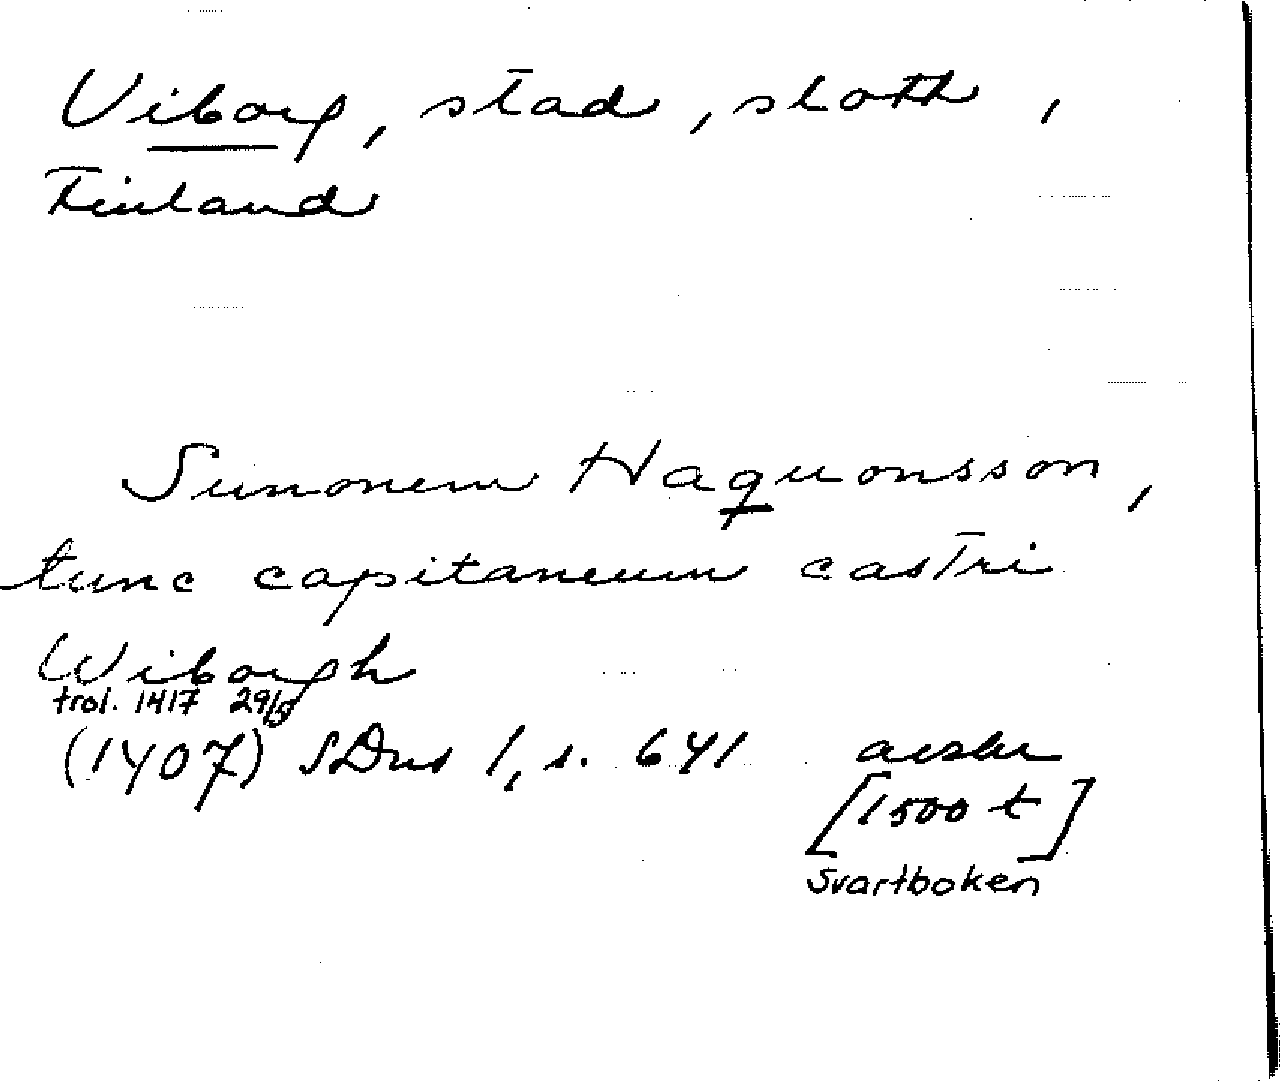 Viborg, stad, slott,
Finland
Sunonem Haquonsson,
tunc capitaneum castri
Wiborgh
trol. 1417 29/5
(1407) SDns 1, s. 641 avskr
[1500 t]
Svartboken